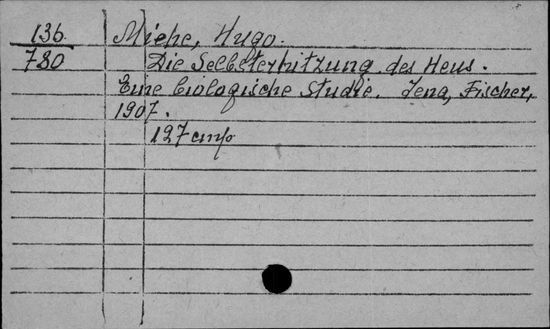 136 Miehe, Hugo.
780 Die Selbsterhitzung des Heus.
Eine biologische Studie. Jena, Fischer,
1907.
127 стр